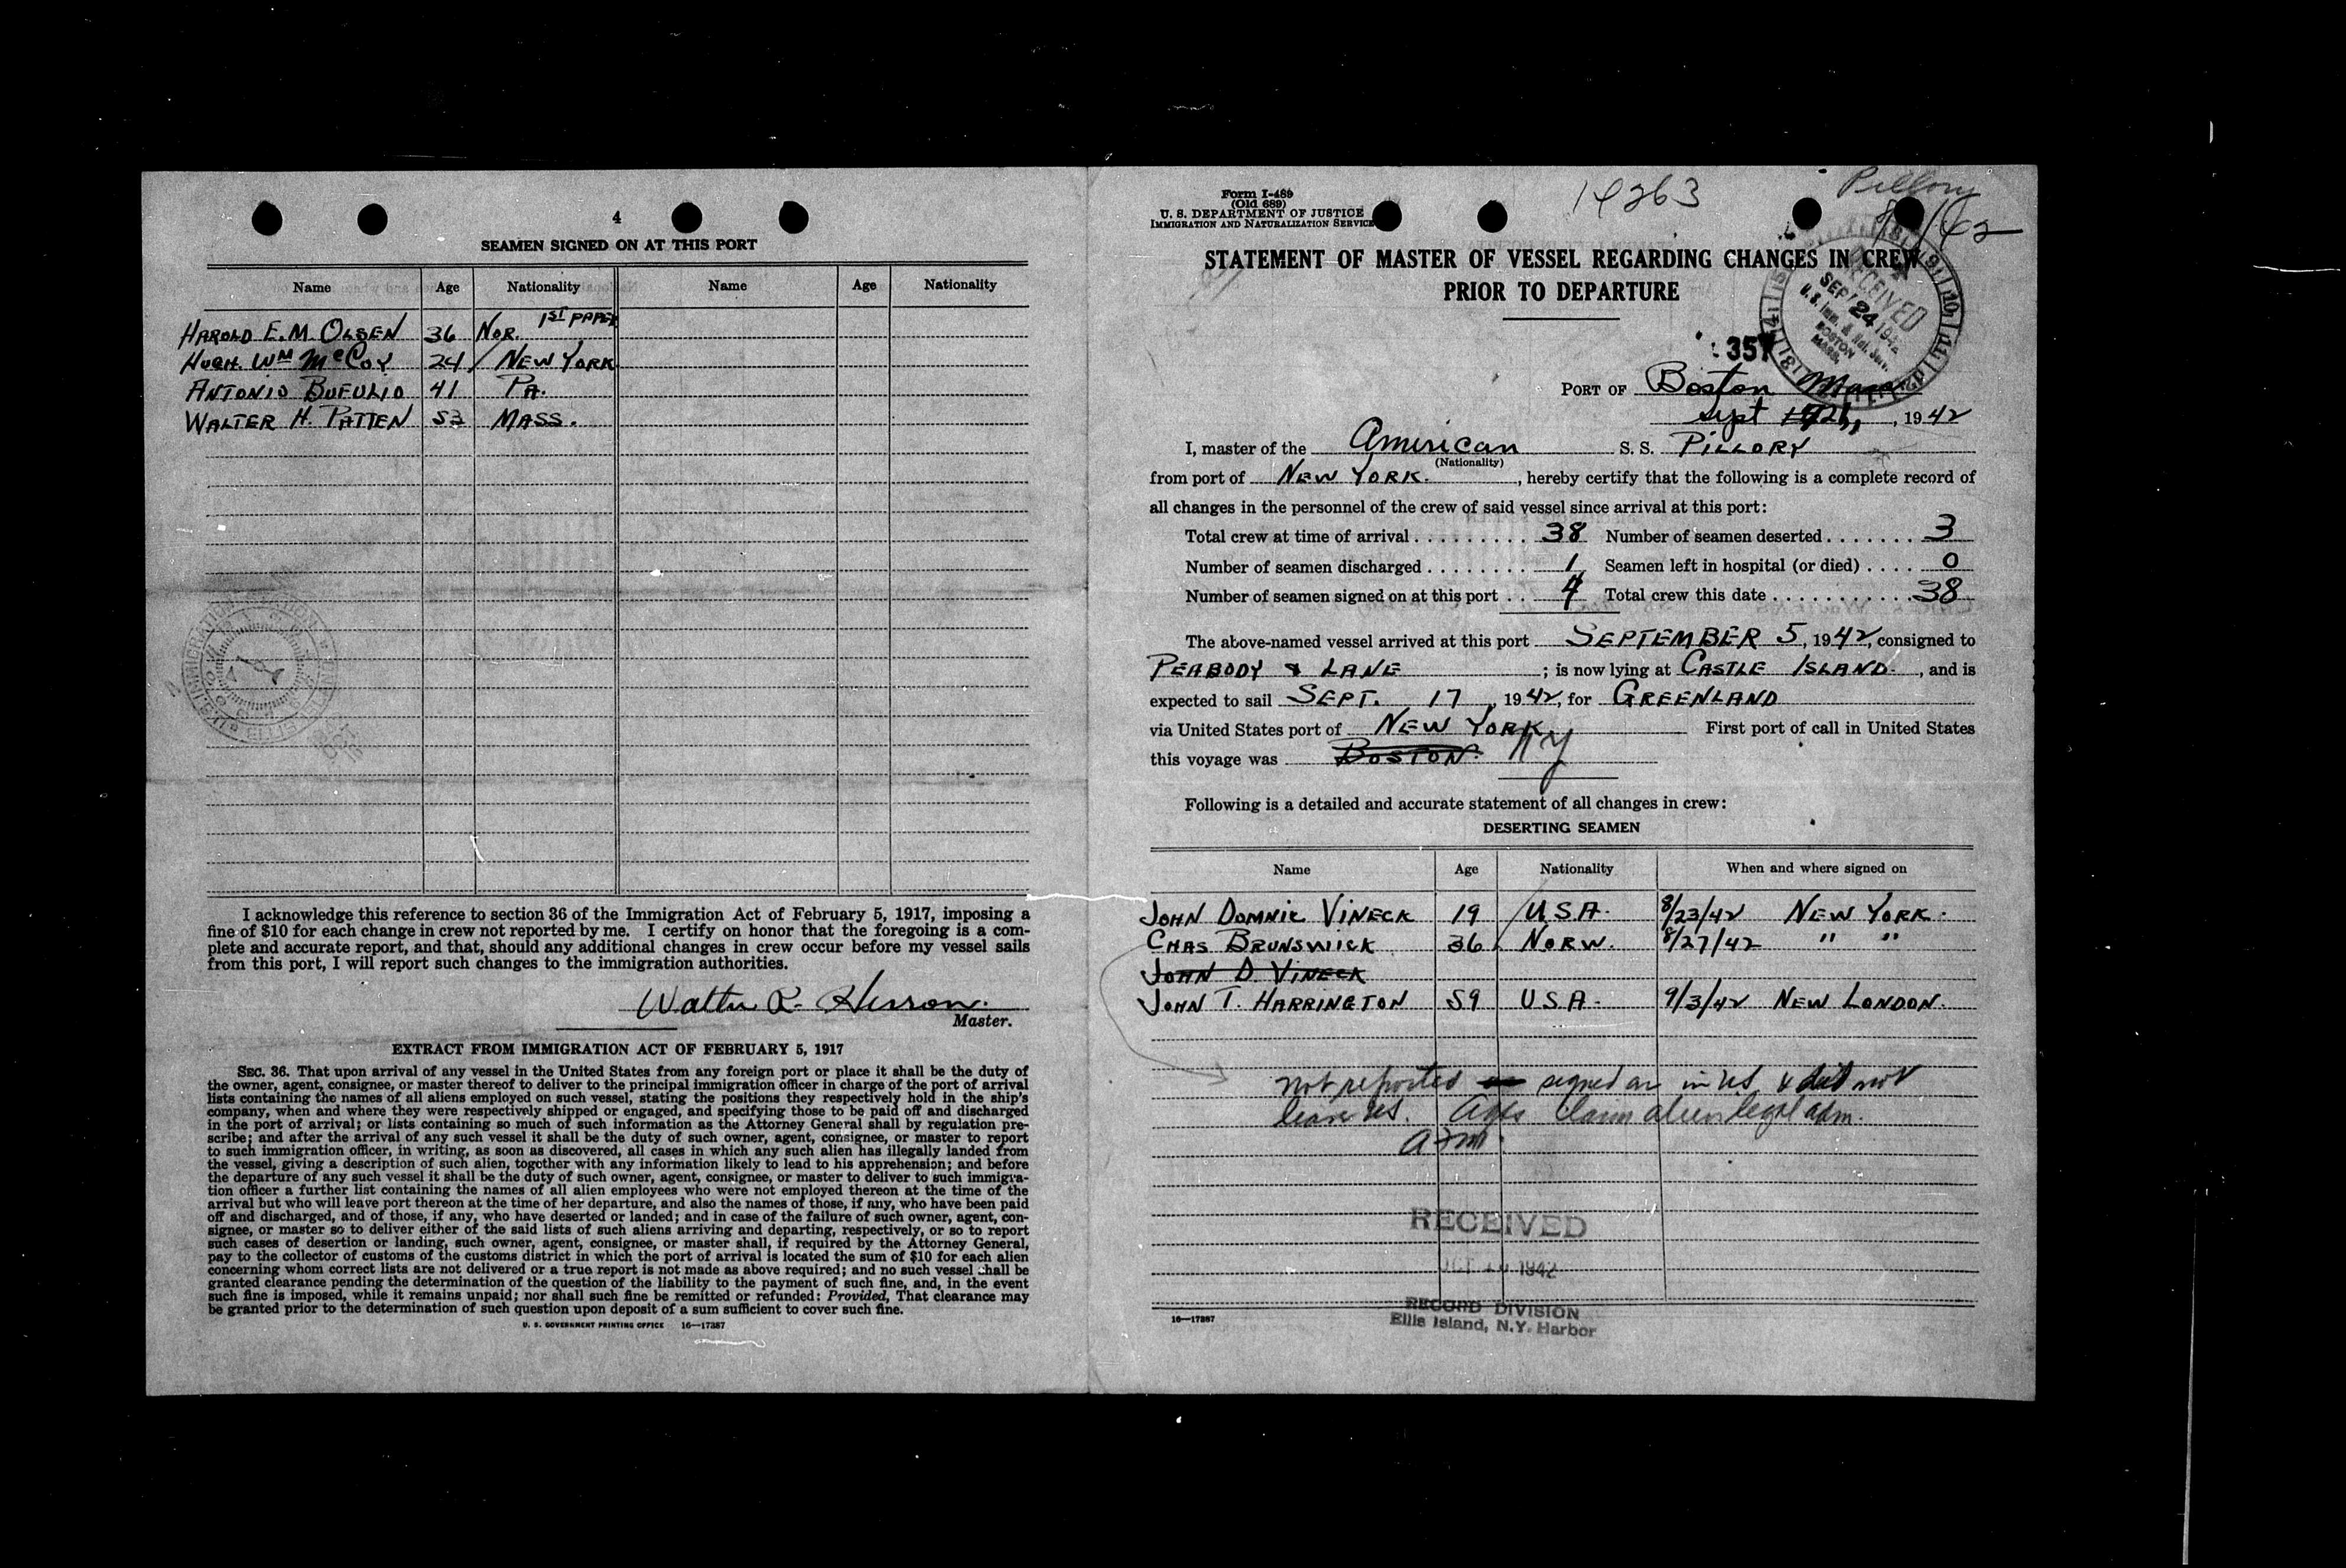 4
SEAMEN SIGNED ON AT THIS PORT
Name Age Nationality Name Age Nationality
HAROLD E.M. OLSEN 36 NOR. 1ST PAPER
HUGH. WM McCOY 24 NEW YORK
ANTONIO BUFULIO 41 PA.
WALTER H. PATTEN 53 MASS.
I acknowledge this reference to section 36 of the Immigration Act of February 5, 1917, imposing a
fine of $10 for each change in crew not reported by me. I certify on honor that the foregoing is a com-
plete and accurate report, and that, should any additional changes in crew occur before my vessel sails
from this port, I will report such changes to the immigration authorities.
Walter R. Herron.
Master.
EXTRACT FROM IMMIGRATION ACT OF FEBRUARY 5, 1917
SEC. 36. That upon arrival of any vessel in the United States from any foreign port or place it shall be the duty of
the owner, agent, consignee, or master thereof to deliver to the principal immigration officer in charge of the port of arrival
lists containing the names of all aliens employed on such vessel, stating the positions they respectively hold in the ship's
company, when and where they were respectively shipped or engaged, and specifying those to be paid off and discharged
in the port of arrival; or lists containing so much of such information as the Attorney General shall by regulation pre-
scribe; and after the arrival of any such vessel it shall be the duty of such owner, agent, consignee, or master to report
to such immigration officer, in writing, as soon as discovered, all cases in which any such alien has illegally landed from
the vessel, giving a description of such alien, together with any information likely to lead to his apprehension; and before
the departure of any such vessel it shall be the duty of such owner, agent, consignee, or master to deliver to such immigra-
tion officer a further list containing the names of all alien employees who were not employed thereon at the time of the
arrival but who will leave port thereon at the time of her departure, and also the names of those, if any, who have been paid
off and discharged, and of those, if any, who have deserted or landed; and in case of the failure of such owner, agent, con-
signee, or master so to deliver either of the said lists of such aliens arriving and departing, respectively, or so to report
such cases of desertion or landing, such owner, agent, consignee, or master shall, if required by the Attorney General,
pay to the collector of customs of the customs district in which the port of arrival is located the sum of $10 for each alien
concerning whom correct lists are not delivered or a true report is not made as above required; and no such vessel shall be
granted clearance pending the determination of the question of the liability to the payment of such fine, and, in the event
such fine is imposed, while it remains unpaid; nor shall such fine be remitted or refunded: Provided, That clearance may
be granted prior to the determination of such question upon deposit of a sum sufficient to cover such fine.
U. S. GOVERNMENT PRINTING OFFICE 16—17387
Form I-489
(Old 689)
U. S. DEPARTMENT OF JUSTICE
IMMIGRATION AND NATURALIZATION SERVICE
14263
Pillory
STATEMENT OF MASTER OF VESSEL REGARDING CHANGES IN CREW
PRIOR TO DEPARTURE
RECEIVED
SEP 24 1942
U. S. Imm. & Nat. Serv.
BOSTON
MASS.
357
PORT OF Boston Mass
Sept 1942
I, master of the American S. S. PILLORY
(Nationality)
from port of NEW YORK., hereby certify that the following is a complete record of
all changes in the personnel of the crew of said vessel since arrival at this port:
Total crew at time of arrival 38 Number of seamen deserted 3
Number of seamen discharged 1 Seamen left in hospital (or died) 0
Number of seamen signed on at this port 4 Total crew this date 38
The above-named vessel arrived at this port SEPTEMBER 5, 1942, consigned to
PEABODY & LANE; is now lying at CASTLE ISLAND., and is
expected to sail SEPT. 17, 1942, for GREENLAND
via United States port of NEW YORK First port of call in United States
this voyage was BOSTON. NY
Following is a detailed and accurate statement of all changes in crew:
DESERTING SEAMEN
Name Age Nationality When and where signed on
JOHN DOMNIC VINECK 19 U.S.A. 8/23/42 NEW YORK.
CHAS BRUNSWICK 36 NORW. 8/27/42 " "
JOHN D. VINECK
JOHN T. HARRINGTON 59 U.S.A. 9/3/42 NEW LONDON.
not reported signed on in US & did not
leave US. Agts claim alien legal adm.
RECEIVED
1942
RECORD DIVISION
Ellis Island, N.Y. Harbor
16—17387